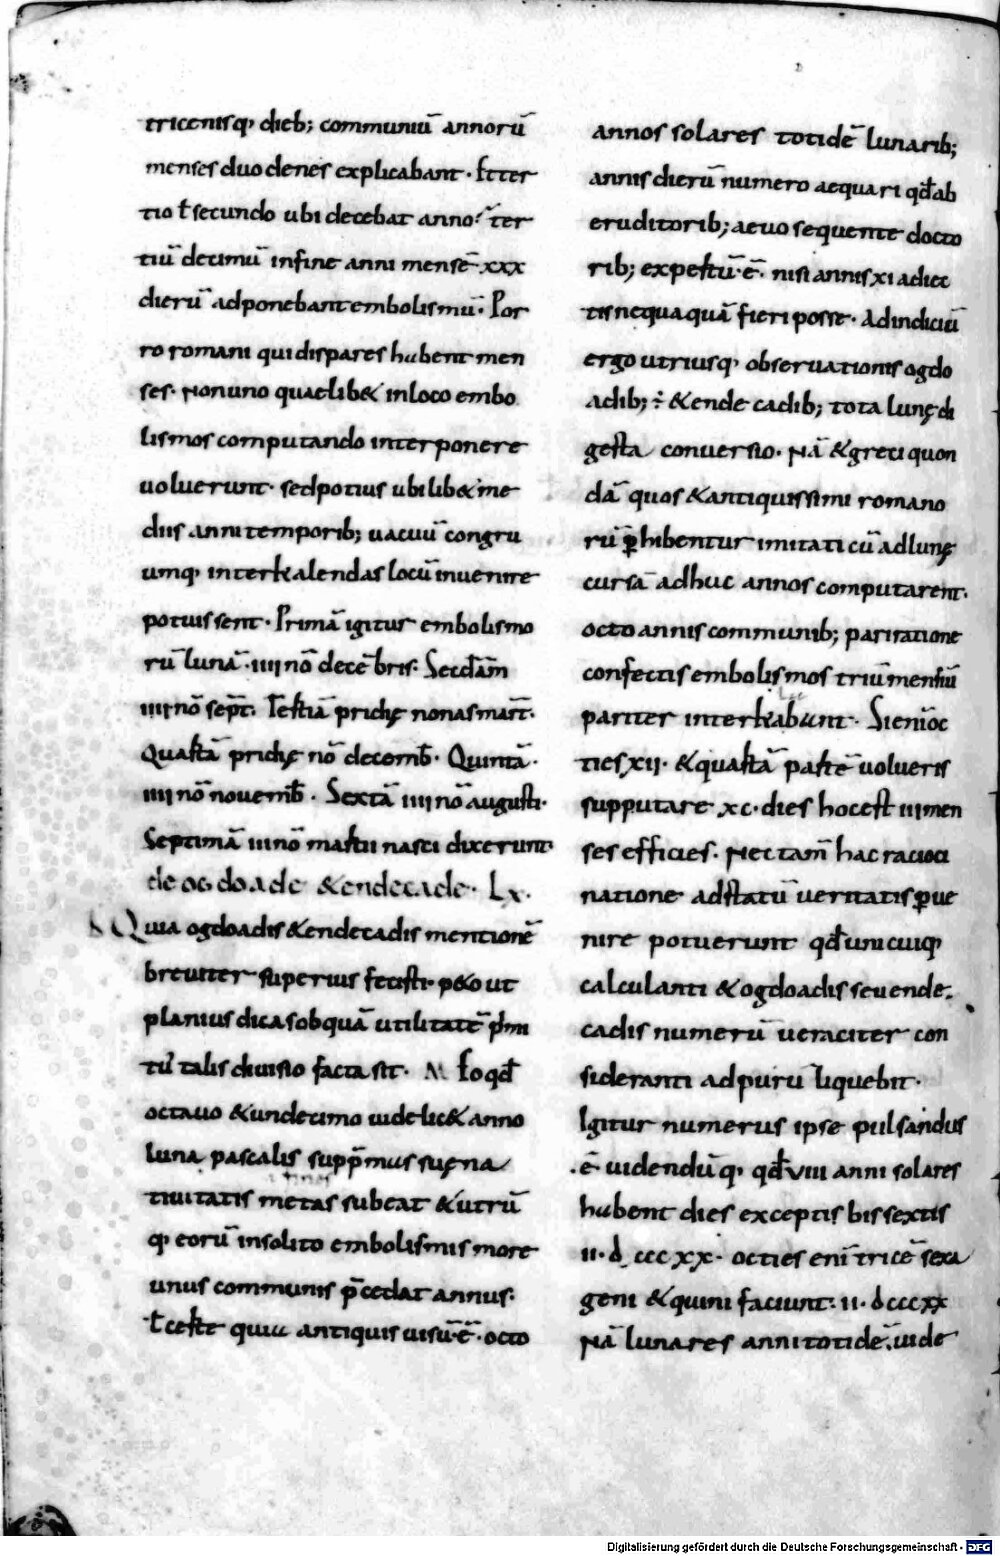 tricenisq; dieb; communiū annorū
menses duodenes explicabant· & ter
tio ł secundo ubi decebat anno· ter
tiū decimū in fine anni mensē xxx
dierū adponebant embolismū· Por
ro romani qui dispares habent men
ses· Non uno quaelib& in loco embo
lismos computando interponere
uoluerunt· sed potius ubilib& me
diis anni temporib; uacuū congru
umq; inter kalendas locū inuenire
potuissent· Primā igitur embolismo
rū lunā iiii nō decēbris· Secdam
iiii nō sept̄· Tertiā pridię nonas mart̄·
Quartā pridię nō decemb̄· Quintā·
iiii nō nouemb̄· Sextā iiii nō augusti·
Septimā iii nō martii nasci dixerunt·
de ogdoade & endecade· Lx·
Quia ogdoadis & endecadis mentionē
breuiter superius fecisti· p&o ut
planius dicas ob quā utilitatē
talis diuisio facta sit· M
octauo & undecimo uidelic& anno
luna pascalis supp̄mus suęna
tiuitatis metas subeat & utrū
q; eorū insolito embolismis more
unus communis p̄cedat annus·
antiquis uisū ē· octo
annos solares totidē lunarib;
annis dierū numero aequari qđ ab
eruditorib; aeuo sequente docto
rib; expertū·ē· nisi annis xi adiec
tis nequaquā fieri posse· Ad indiciū
ergo utriusq; obseruationis ogdo
adib; ÷ & endecadib; tota lunę di
gesta conuersio· Nā & greci quon
dā quos & antiquissimi romano
rū ꝑhibentur imitati cū ad lunę
cursā adhuc annos computarent·
octo annis communib; pari ratione
confectis embolismos triū mensiū
pariter interkabunt· Si enī oc
ties xii· & quartā partē uolueris
supputare xc· dies hoc est iii men
ses efficies· Nec tam̄ hac racioci
natione ad statū ueritatis ꝑue
nire potuerunt qđ unicuiq;
calculanti & ogdoadis seu ende·
cadis numerū ueraciter con
sideranti ad purū liquebit·
Igitur numerus ipse pulsandus
·ē uidendūq; qđ viii anni solares
habent dies exceptis bissextis
ii· d̄cccxx· octies enī tricē sexa
geni & quini faciunt· ii· dcccxx
Nā lunares anni totidē· uide
Digitalisierung gefördert durch die Deutsche Forschungsgemeinschaft - DFG